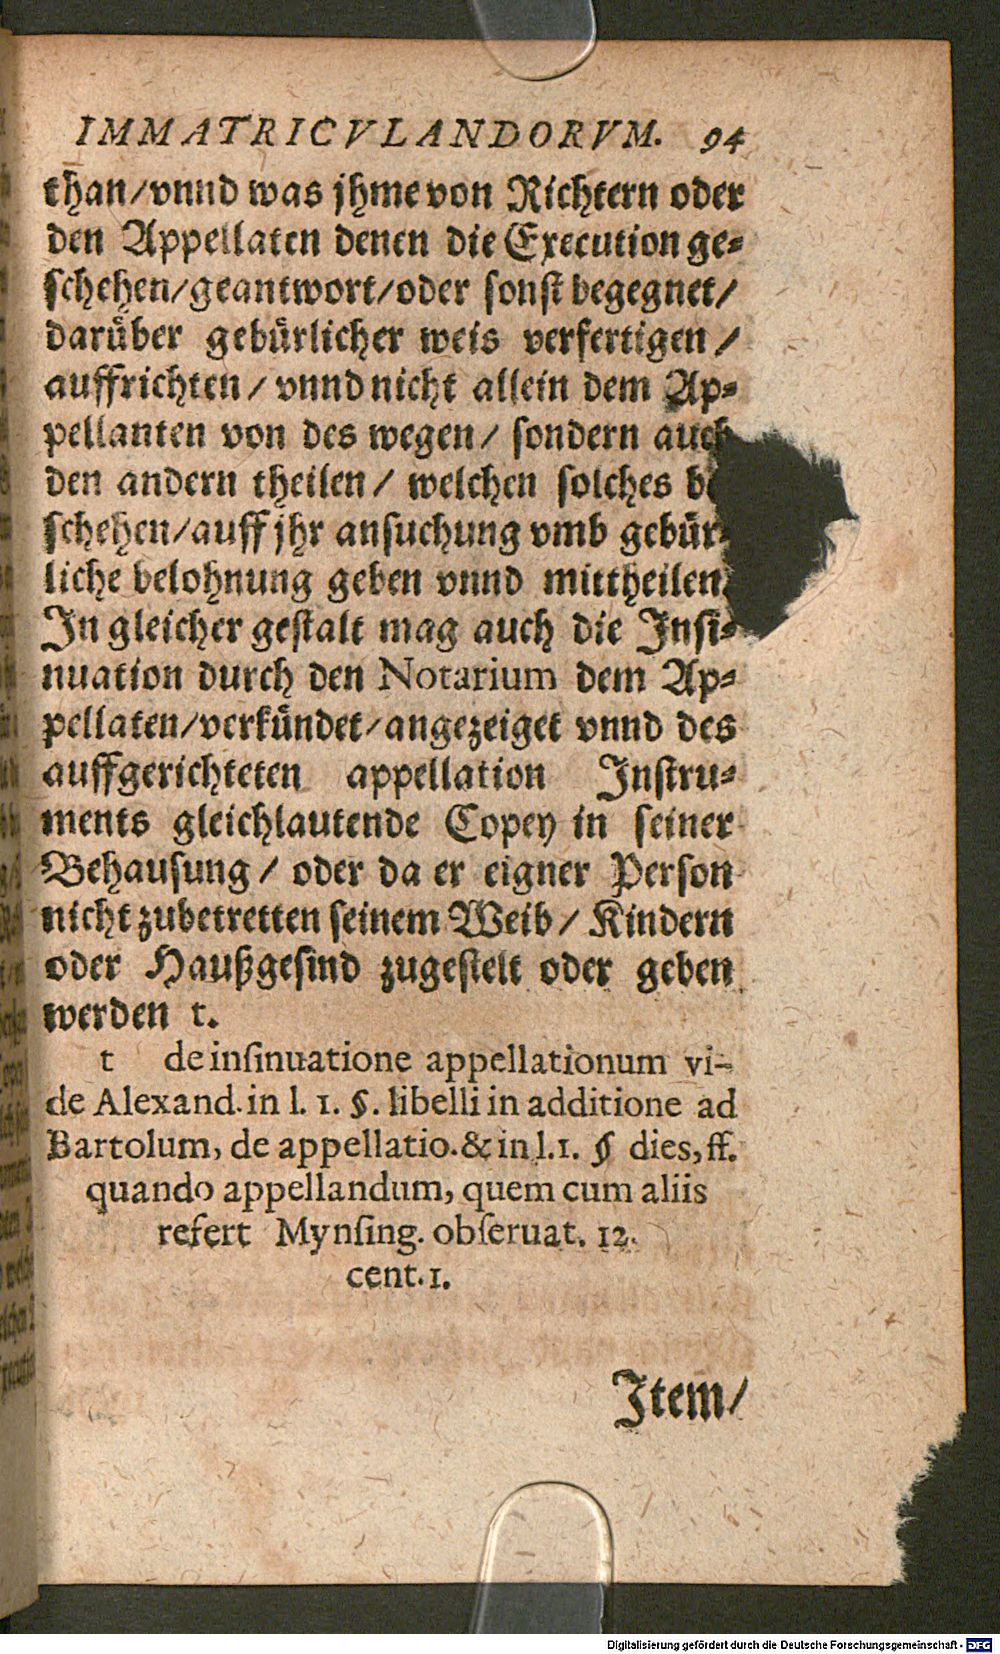 IMMATRICVLANDORVM. 94
than/vnnd was jhme von Richtern oder
den Appellaten denen die Execution ge⸗
schehen/geantwort/oder sonst begegnet/
darüber gebürlicher weis verfertigen/
auffrichten/vnnd nicht allein dem Ap⸗
pellanten von des wegen/ sondern auch
den andern theilen/ welchen solches
schehen/auff jhr ansuchung vmb gebür⸗
liche belohnung geben vnnd mittheilen.
In gleicher gestalt mag auch die Insi⸗
nuation durch den Notarium dem Ap⸗
pellaten/verkündet/angezeiget vnnd des
auffgerichteten appellation Instru⸗
ments gleichlautende Copey in seiner
Behausung/ oder da er eigner Person
nicht zubetretten seinem Weib/ Kindern
oder Haußgesind zugestelt oder geben
werden t.
t de insinuatione appellationum vi-
de Alexand. in l. 1. §. libelli in additione ad
Bartolum, de appellatio. & in l.1. § dies, ff.
quando appellandum, quem cum aliis
refert Mynsing. obseruat. 12.
cent. 1.
Item/
Digitalisierung gefördert durch die Deutsche Forschungsgemeinschaft - DFG